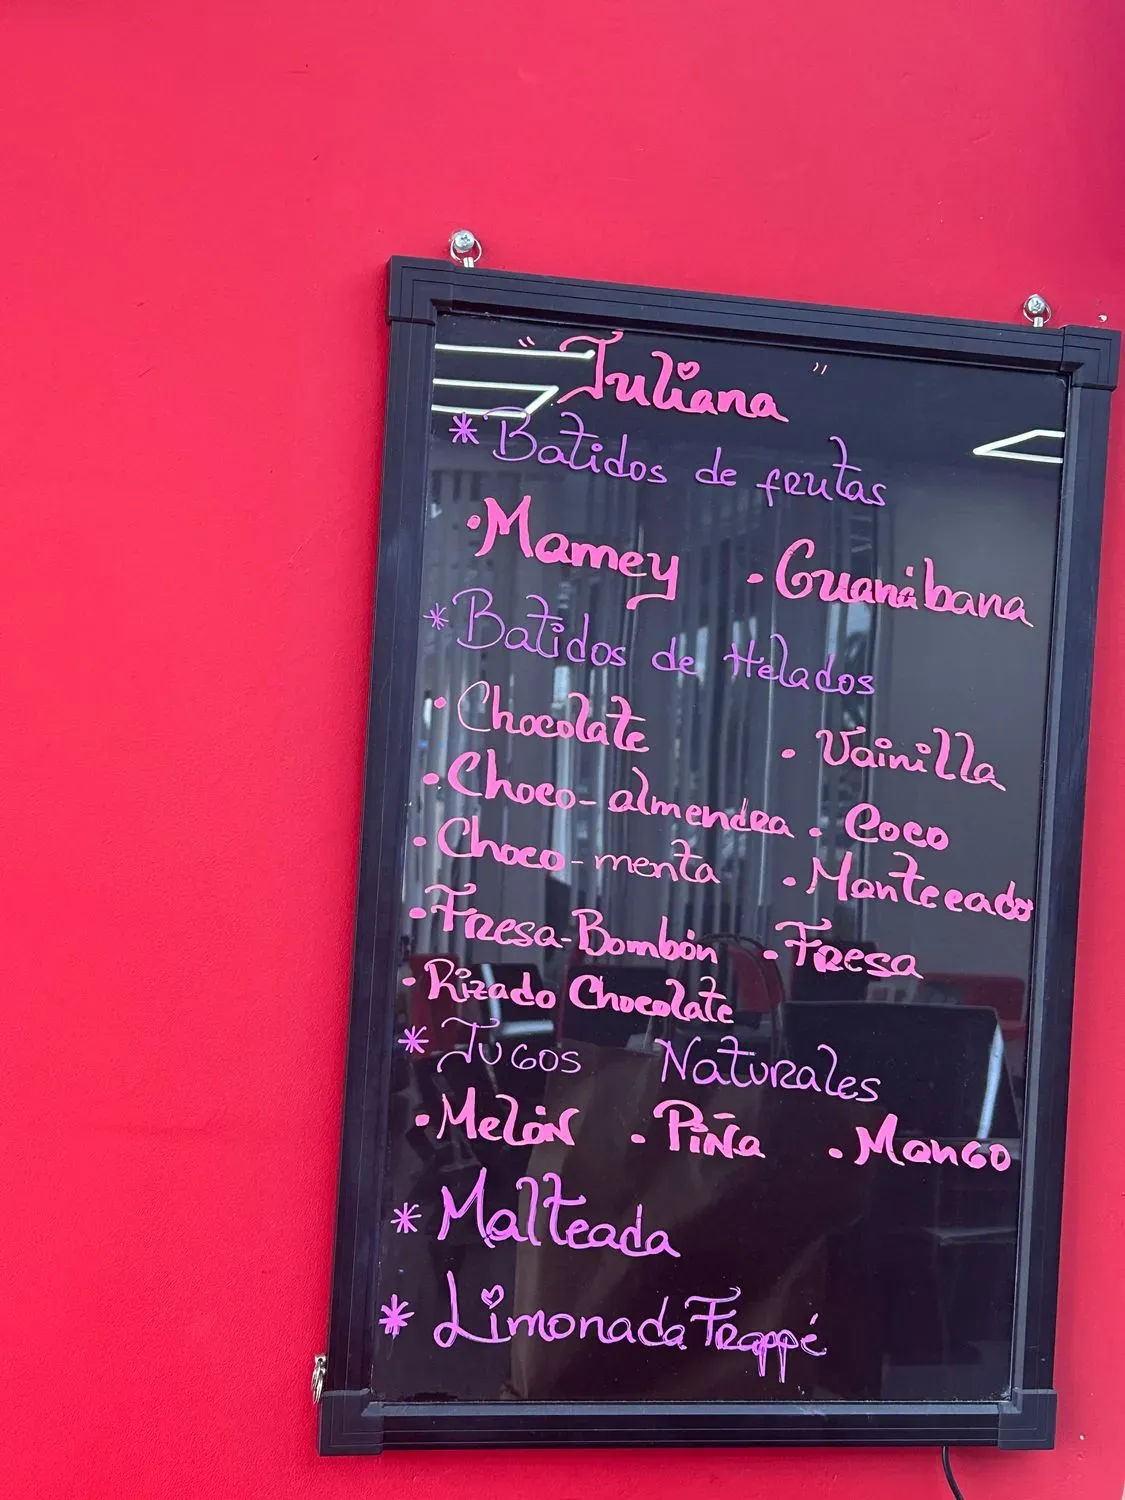 "Juliana"
* Batidos de frutas
· Mamey · Guanábana
* Batidos de Helados
· Chocolate · Vainilla
· Choco-almendra · Coco
· Choco-menta · Mantecado
· Fresa-Bombón · Fresa
· Rizado Chocolate
* Jugos Naturales
· Melón · Piña · Mango
* Malteada
* Limonada Frappé